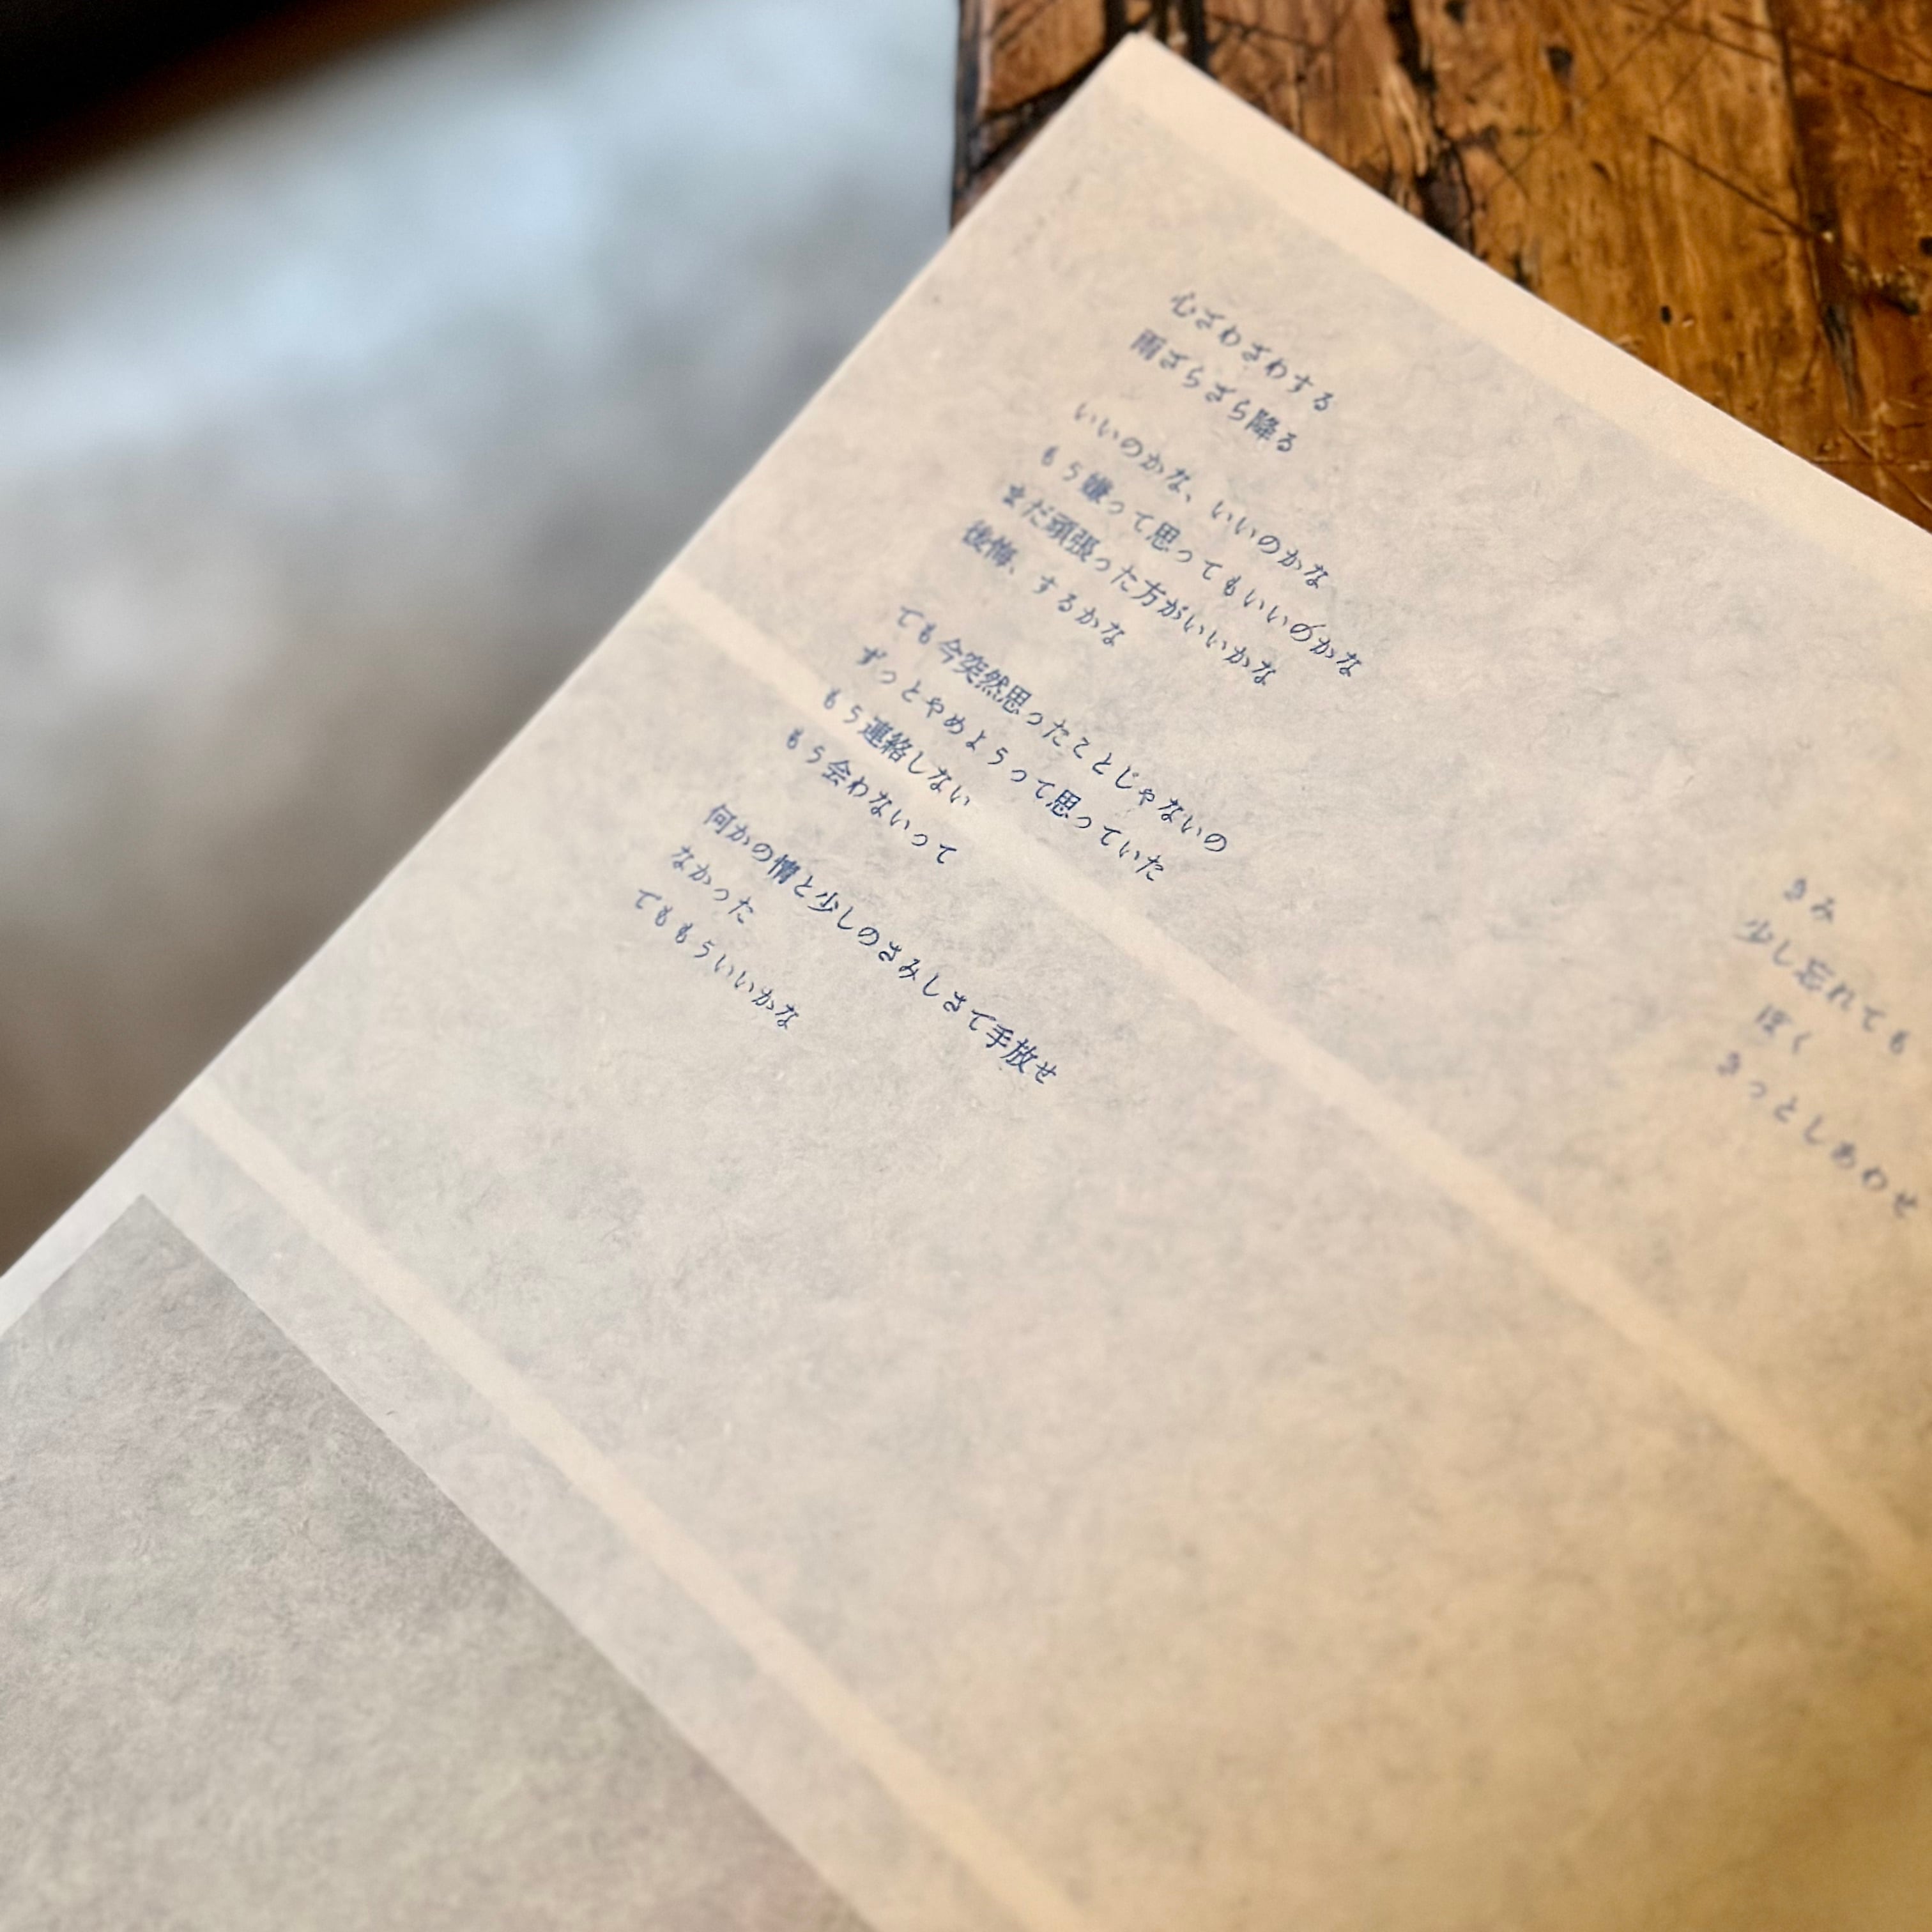 心ざわざわする
雨ざらざら降る
いいのかな、いいのかな
もう嫌って思ってもいいのかな
まだ頑張った方がいいかな
後悔、するかな
でも今突然思ったことじゃないの
ずっとやめようって思っていた
もう連絡しない
もう会わないって
何かの情と少しのさみしさで手放せ
なかった
でももういいかな
きみ
少し忘れても
ぼく
きっとしあわせ